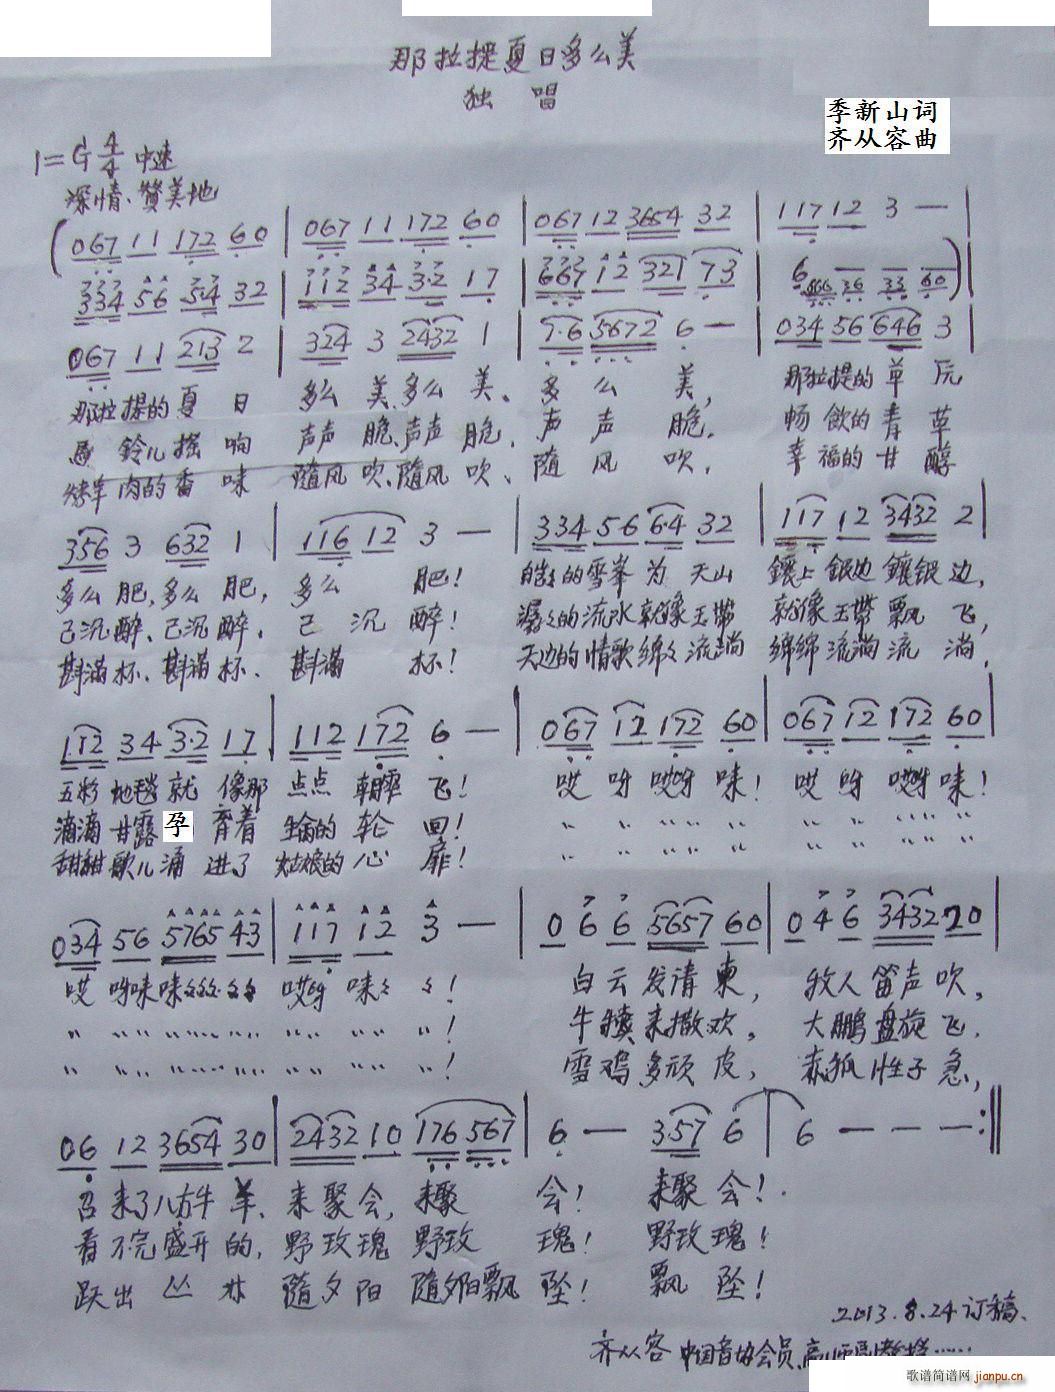 那拉提夏日多么美
独 唱
季新山词
齐从容曲
1=G 4/4 中速
深情、赞美地
(067 11 172 60 | 067 11 172 60 | 067 12 3654 32 | 117 12 3 —
334 56 5·4 32 | 112 34 3·2 17 | 667 12 321 73 | 6 — — — 666 36 33 60)
067 11 213 2 | 324 3 2432 1 | 7·6 5672 6 — | 034 56 646 3
那拉提的夏日 多么美、多么美、多么美, 那拉提的草原
马铃儿摇响 声声脆、声声脆、声声脆. 畅饮的青草
烤羊肉的香味 随风吹、随风吹、随风吹. 幸福的甘醇
356 3 632 1 | 116 12 3 — | 334 56 6·4 32 | 117 12 3432 2 |
多么肥,多么肥,多么肥! 皑々的雪峯为天山 镶上银边镶银边,
己沉醉、己沉醉.己沉醉! 潺々的流水就像玉带 就像玉带飘飞,
斟满杯、斟满杯、斟满杯! 天边的情歌绵々流淌 绵绵流淌流淌.
112 34 3·2 17 | 112 172 6 — | 067 12 172 60 | 067 12 172 60 |
五彩地毯就像那点点朝霞飞! 哎呀哎呀唻! 哎呀哎呀唻!
滴滴甘露孕育着生命的轮回! 〃 〃 〃 〃 〃 〃 〃 〃
甜甜歌儿涌进了姑娘的心扉! 〃 〃 〃 〃 〃 〃 〃 〃
034 56 5765 43 | 117 12 3 — | 0 6 6 5657 60 | 0 4 6 3432 20 |
哎呀唻唻々々々々々 哎呀唻々々! 白云发请柬, 牧人笛声吹,
〃 〃 〃 〃 〃 〃 〃! 牛犊来撒欢, 大鹏盘旋飞.
〃 〃 〃 〃 〃 〃 〃! 雪鸡多顽皮, 赤狐性子急,
06 12 3654 30 | 2432 10 176 567 | 6 — 357 6 | 6 — — — :||
召来了八方牛羊、来聚会,来聚会! 来聚会!
看不完盛开的,野玫瑰野玫瑰! 野玫瑰!
跃出丛林随夕阳随夕阳飘坠! 飘坠!
2013.8.24订稿、
齐从容 中国音协会员、
歌谱简谱网
jianpu.cn